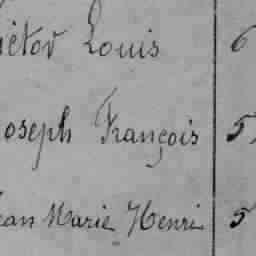 ictor Louis 6
oseph François 5
ean Marie Henri 5